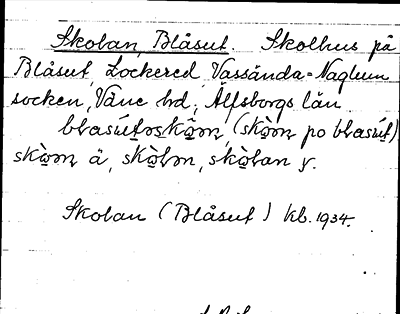 Skolan, Blåsut. Skolhus på
Blåsut, Lockered, Vassända-Naglum
socken, Väne hd, Älfsborgs län
blasút-skòm, (skòm po blasút)
skòm ä, skòln, skòlan y.
Skolan (Blåsut) kb. 1934.